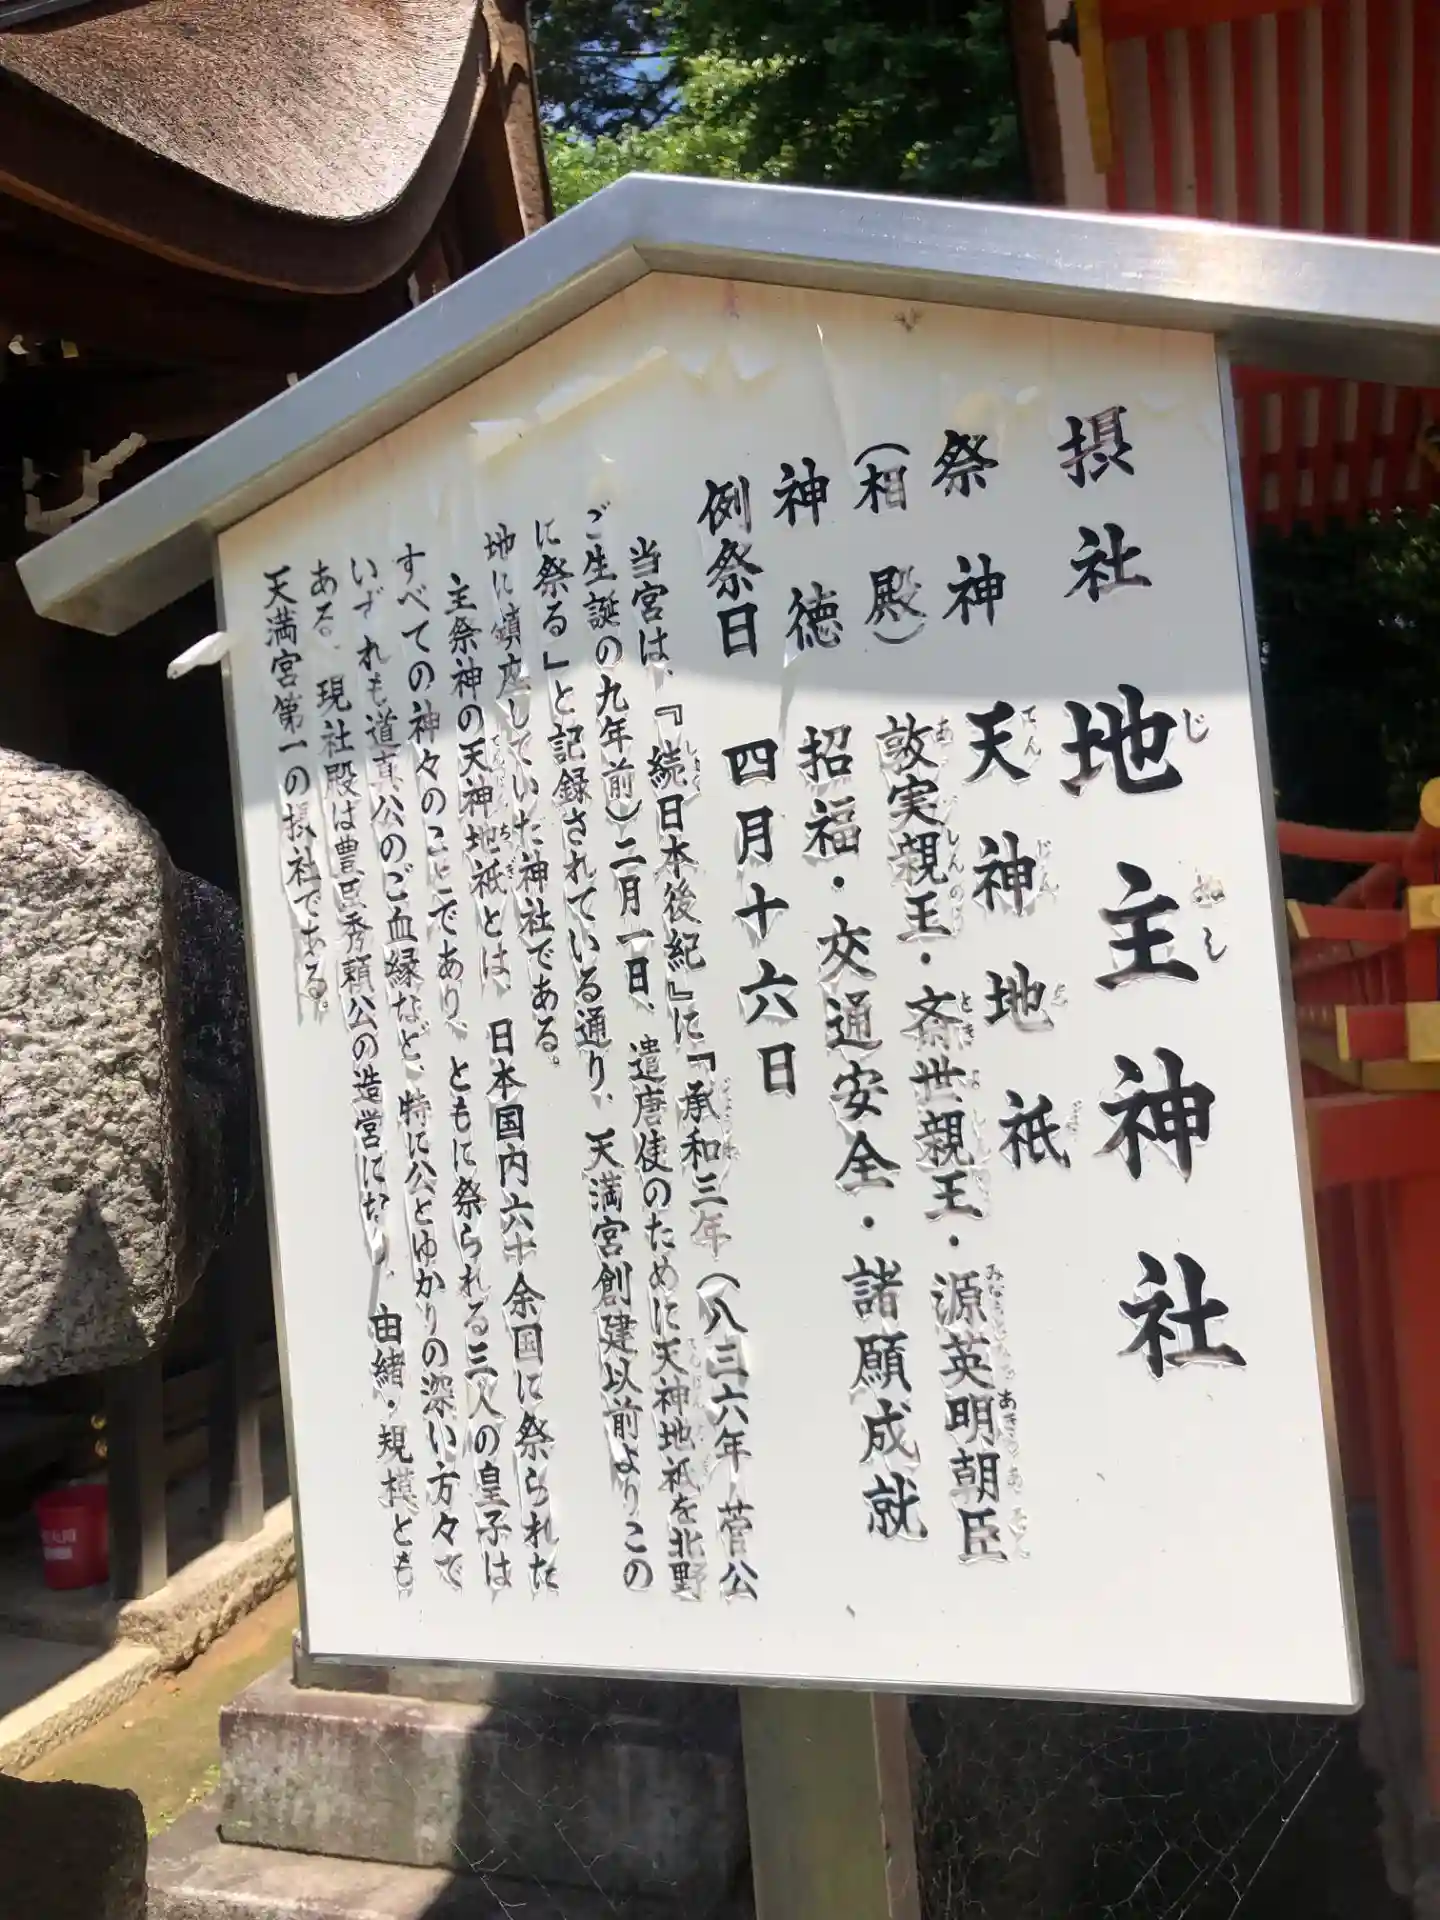 摂社 地主神社
祭神 天神地祇
(相殿) 敦実親王・斎世親王・源英明朝臣
神徳 招福・交通安全・諸願成就
例祭日 四月十六日
当宮は、『続日本後紀』に『承和三年(八三六年 菅公
ご生誕の九年前)二月一日、遣唐使のために天神地祇を北野
に祭る」と記録されている通り、天満宮創建以前よりこの
地に鎮座していた神社である。
主祭神の天神地祇とは、日本国内六十余国に祭られた
すべての神々のことであり、ともに祭られる三人の皇子は
いずれも道真公のご血縁など、特に公とゆかりの深い方々で
ある。現社殿は豊臣秀頼公の造営になり、由緒・規模とも
天満宮第一の摂社である。